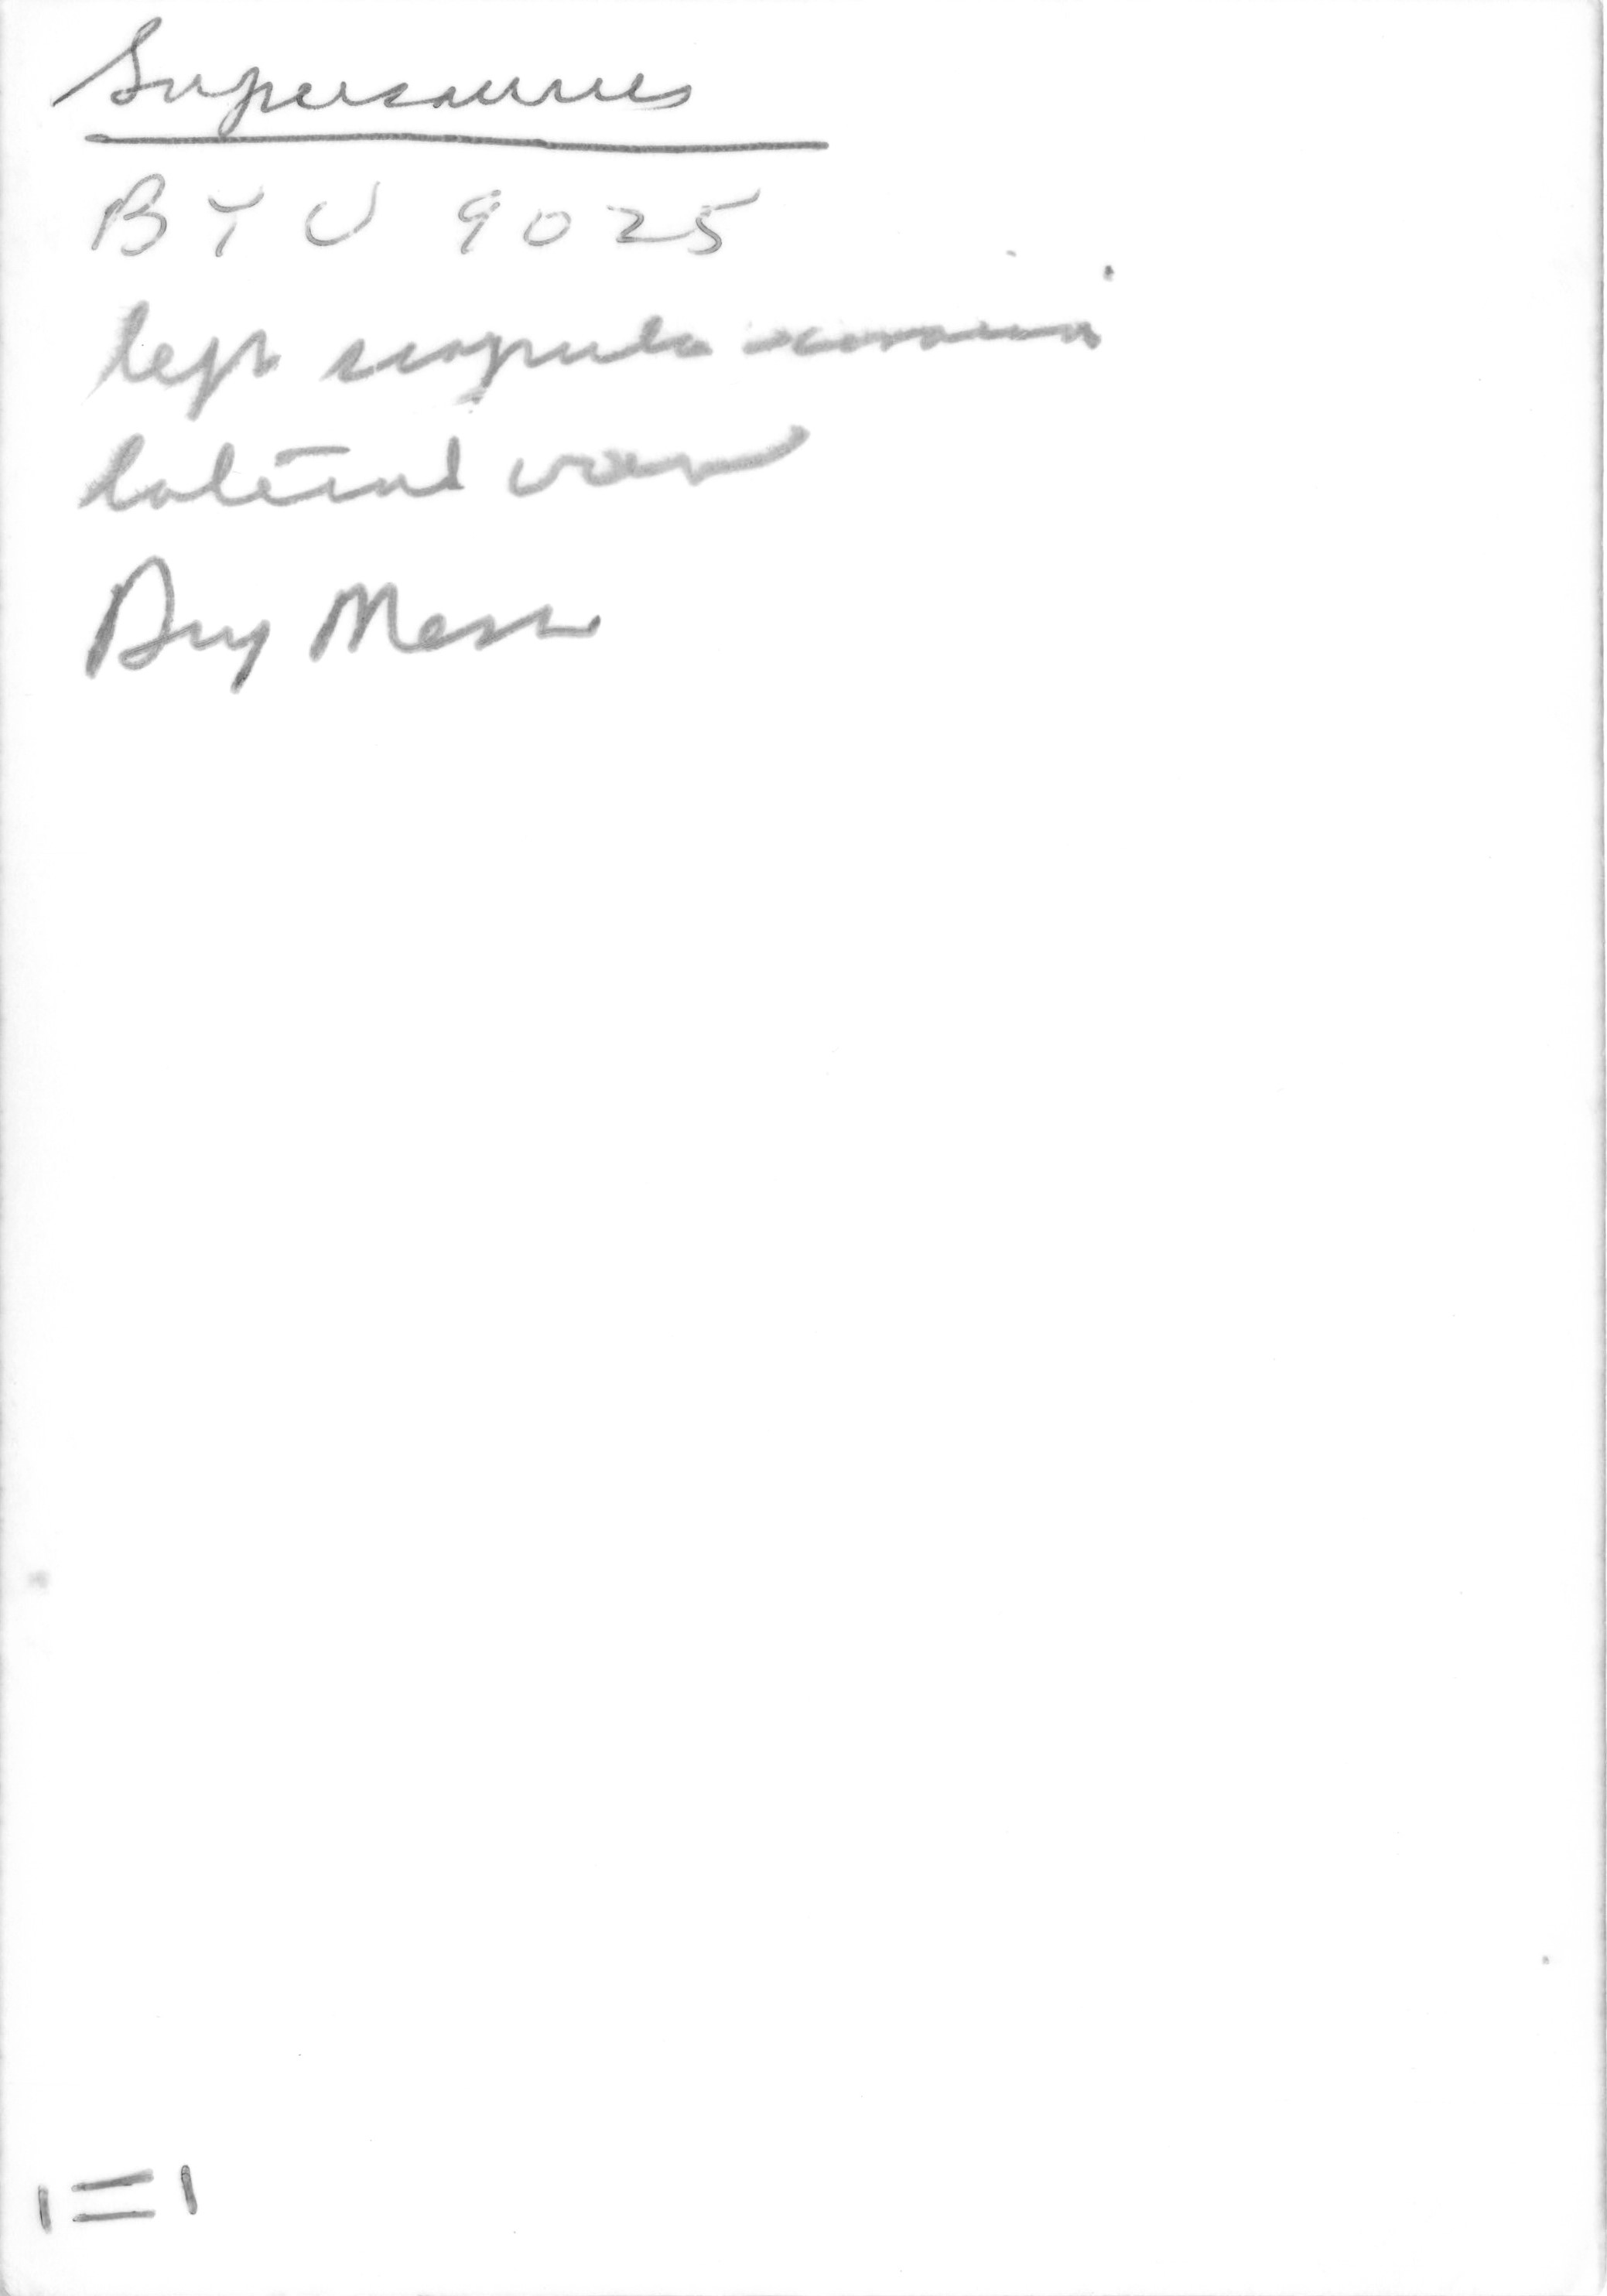 Supersaurus
BYU 9025
left scapula coracoid
lateral view
Dry Mesa
1=1